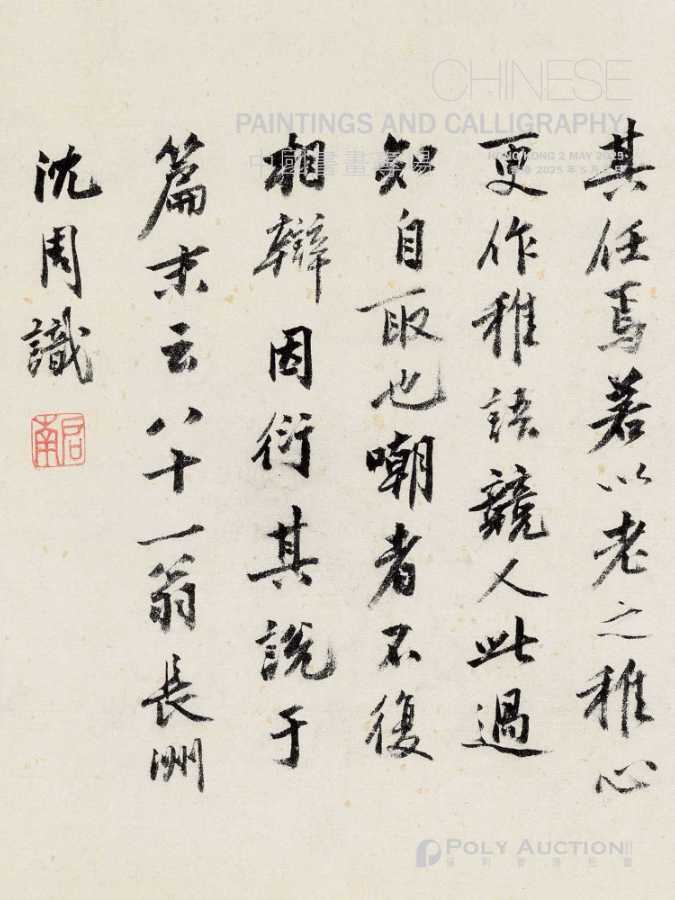 CHINESE
PAINTINGS AND CALLIGRAPHY
中國書畫專場
HONG KONG 2 MAY 2025
2025 年 5 月
其任焉若以老之稚心
更作稚語競人此過
知自取也嘲者不復
相辯因衍其說于
篇末云八十一翁長洲
沈周識
启南
POLY AUCTION
保利香港拍賣